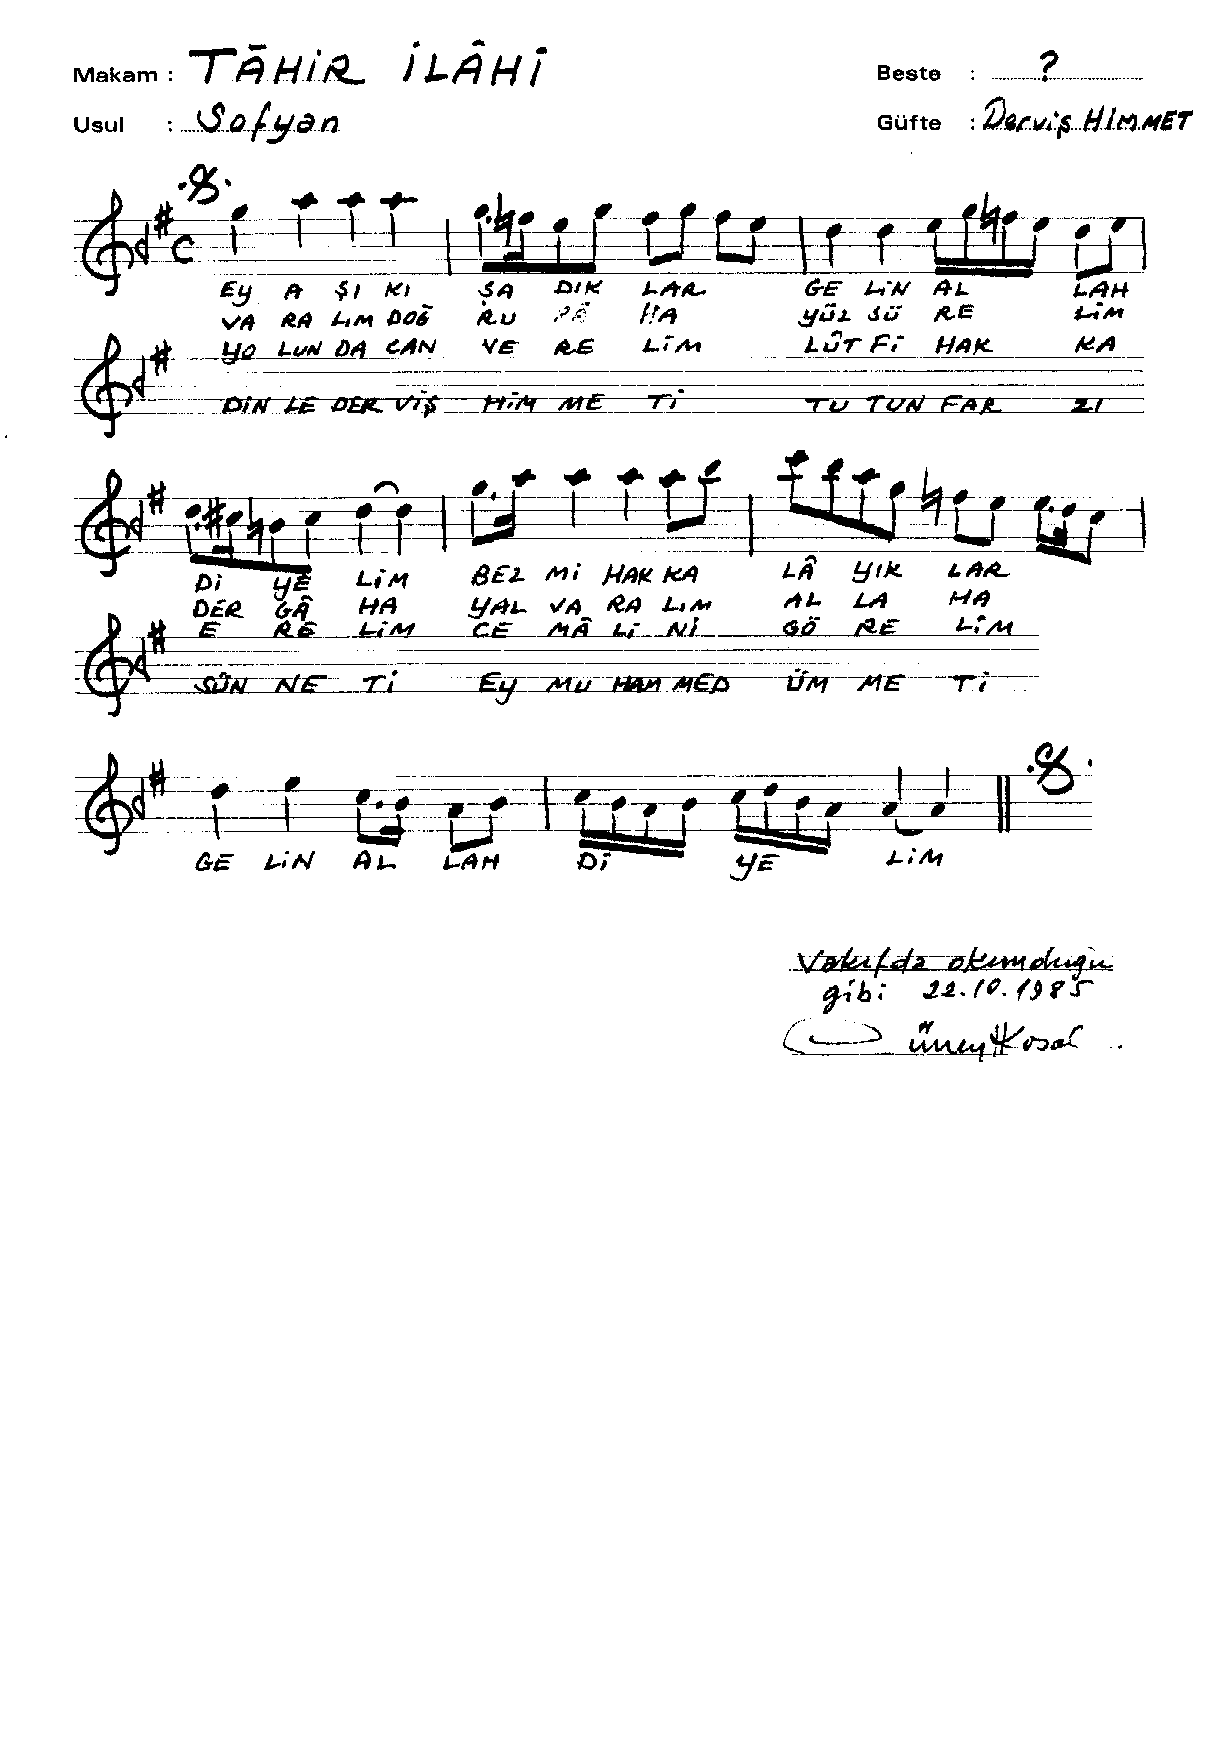 Makam : TÂHİR İLÂHİ Beste : ?
Usul : Sofyan Güfte : Derviş HİMMET
EY A ŞI KI SA DIK LAR GE LİN AL LAH
VA RA LIM DOĞ RU HA YÜZ SÜ RE LİM
YO LUN DA CAN VE RE LİM LÛT Fİ HAK KA
DİN LE DER VİŞ HİM ME Tİ TU TUN FAR ZI
Dİ YE LİM BEZ Mİ HAK KA LÂ YIK LAR
DER GÂ HA YAL VA RA LIM AL LA HA
E RE LİM CE MÂ Lİ Nİ GÖ RE LİM
SÜN NE Tİ EY MU HAM MED ÜM ME Tİ
GE LİN AL LAH Dİ YE LİM
Vakıfda okunduğu
gibi 22.10.1985
Cüneyt Kosal